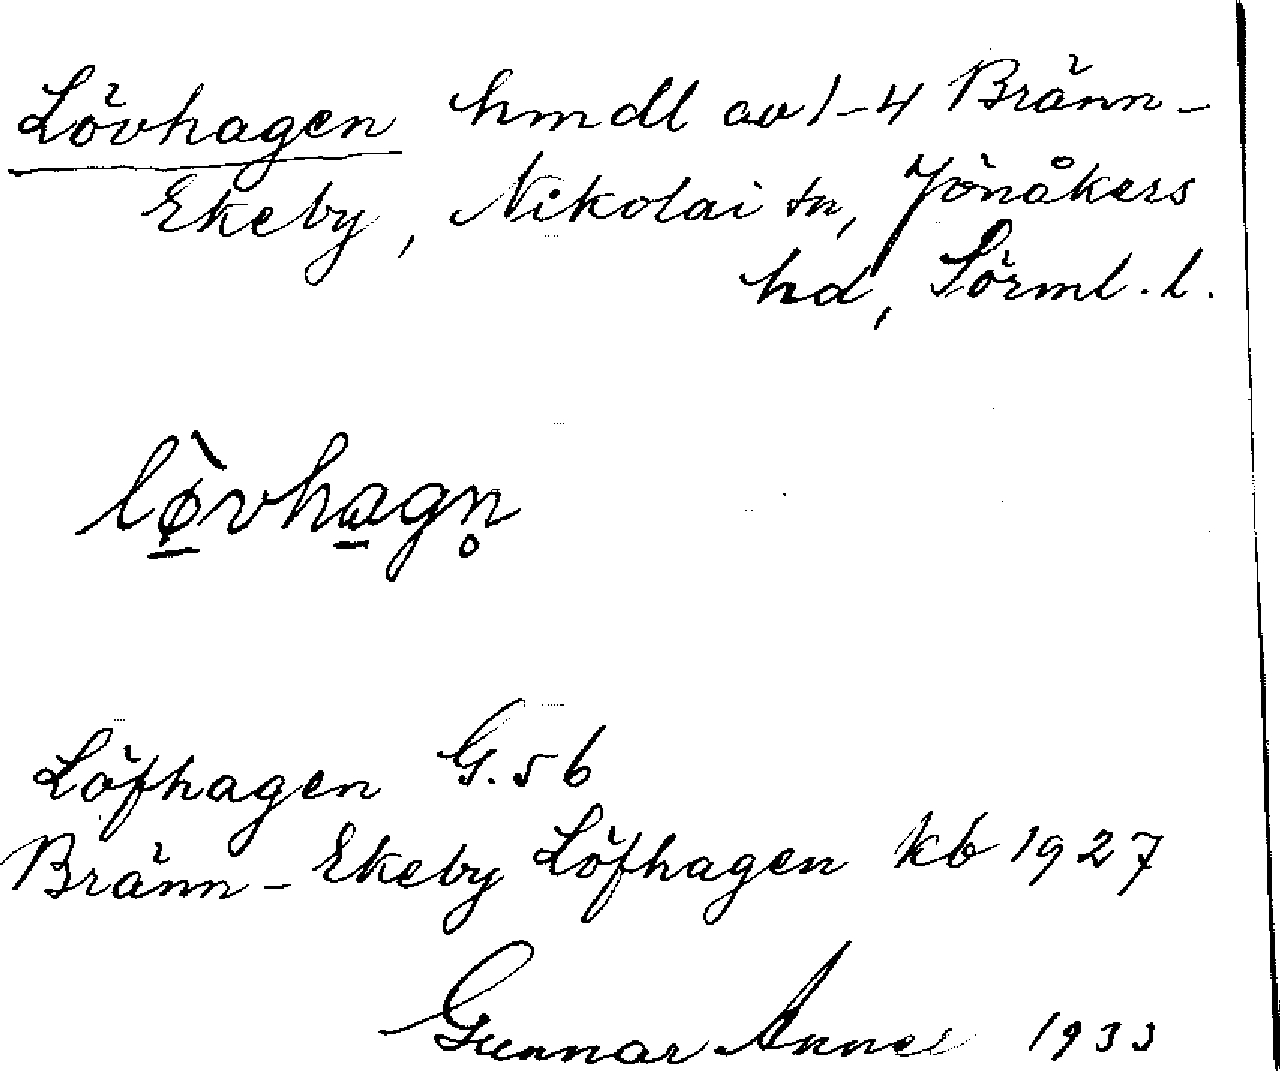 Lövhagen hmdl av 1-4 Bränn-
Ekeby, Nikolai sn, Jönåkers
hd, Sörml. l.
lø̠̀vha̠gn̥
Löfhagen G. 56
Bränn-Ekeby Löfhagen kb 1927
Gunnar Annel 1933